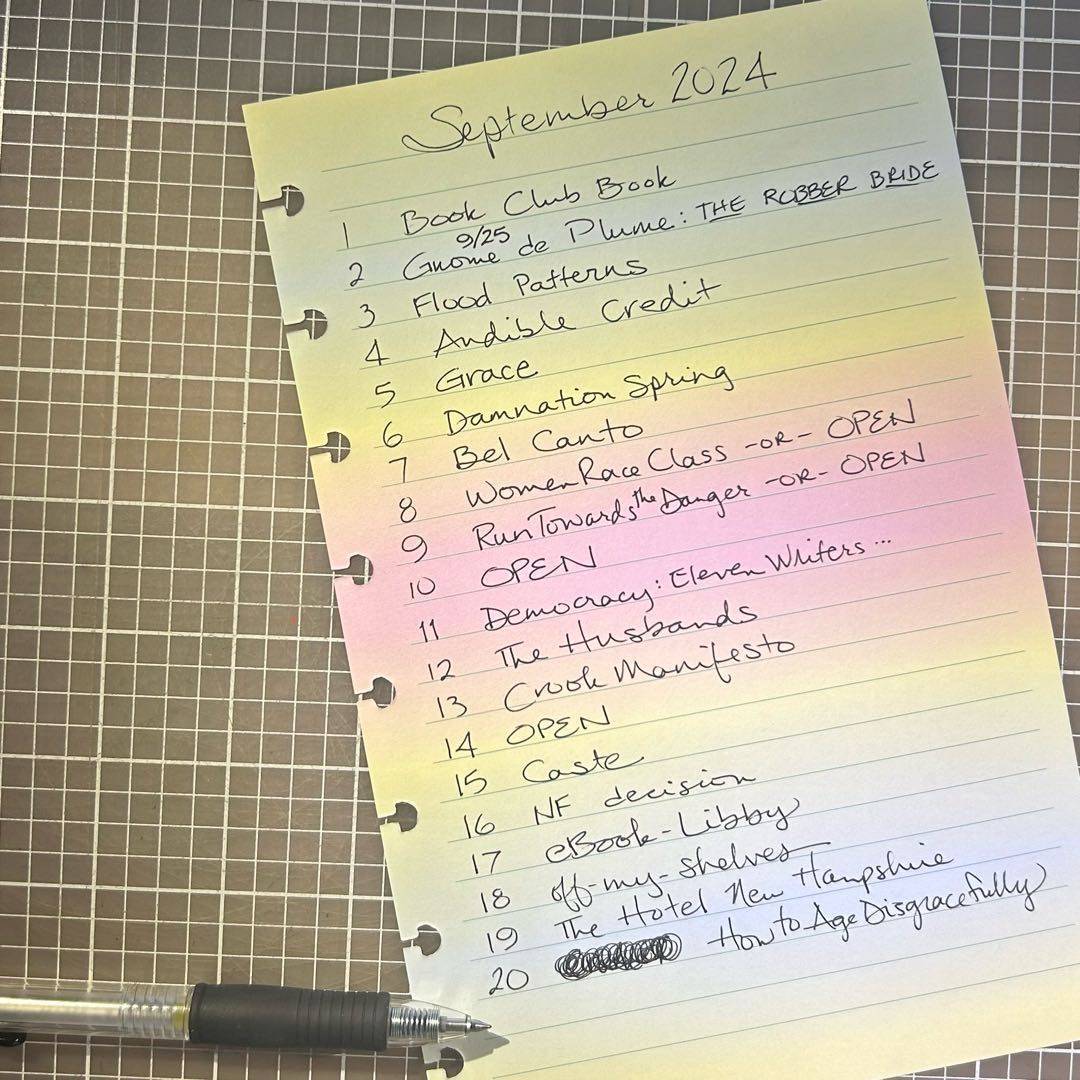 September 2024
1 Book Club Book
2 Gnome de Plume: THE ROBBER BRIDE
9/25
3 Flood Patterns
4 Audible Credit
5 Grace
6 Damnation Spring
7 Bel Canto
8 Women Race Class -OR- OPEN
9 Run Towards the Danger -OR- OPEN
10 OPEN
11 Democracy: Eleven Writers...
12 The Husbands
13 Crook Manifesto
14 OPEN
15 Caste
16 NF decision
17 eBook-Libby
18 off-my-shelves
19 The Hotel New Hampshire
20 How to Age Disgracefully